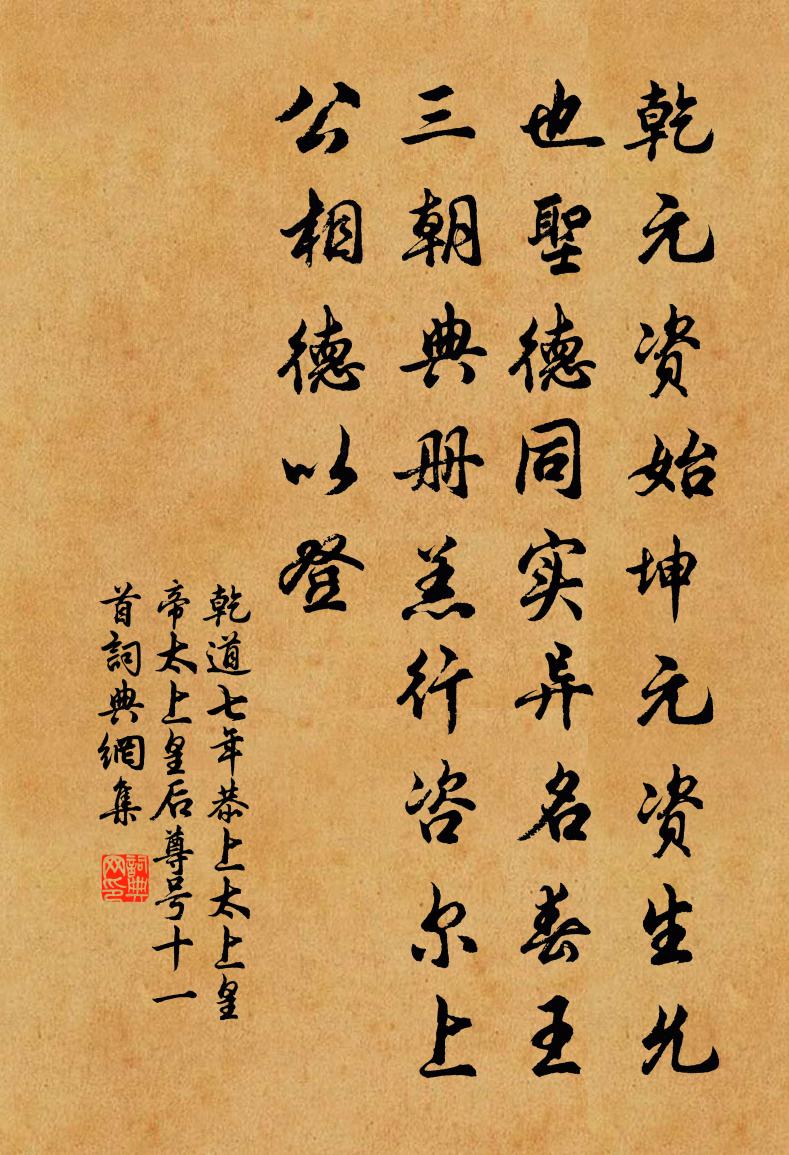 乾元资始坤元资生允
也聖德同实异名春王
三朝典册羔行咨尔上
公相德以登
乾道七年恭上太上皇
帝太上皇后尊号十一
首詞典網集
詞典网印